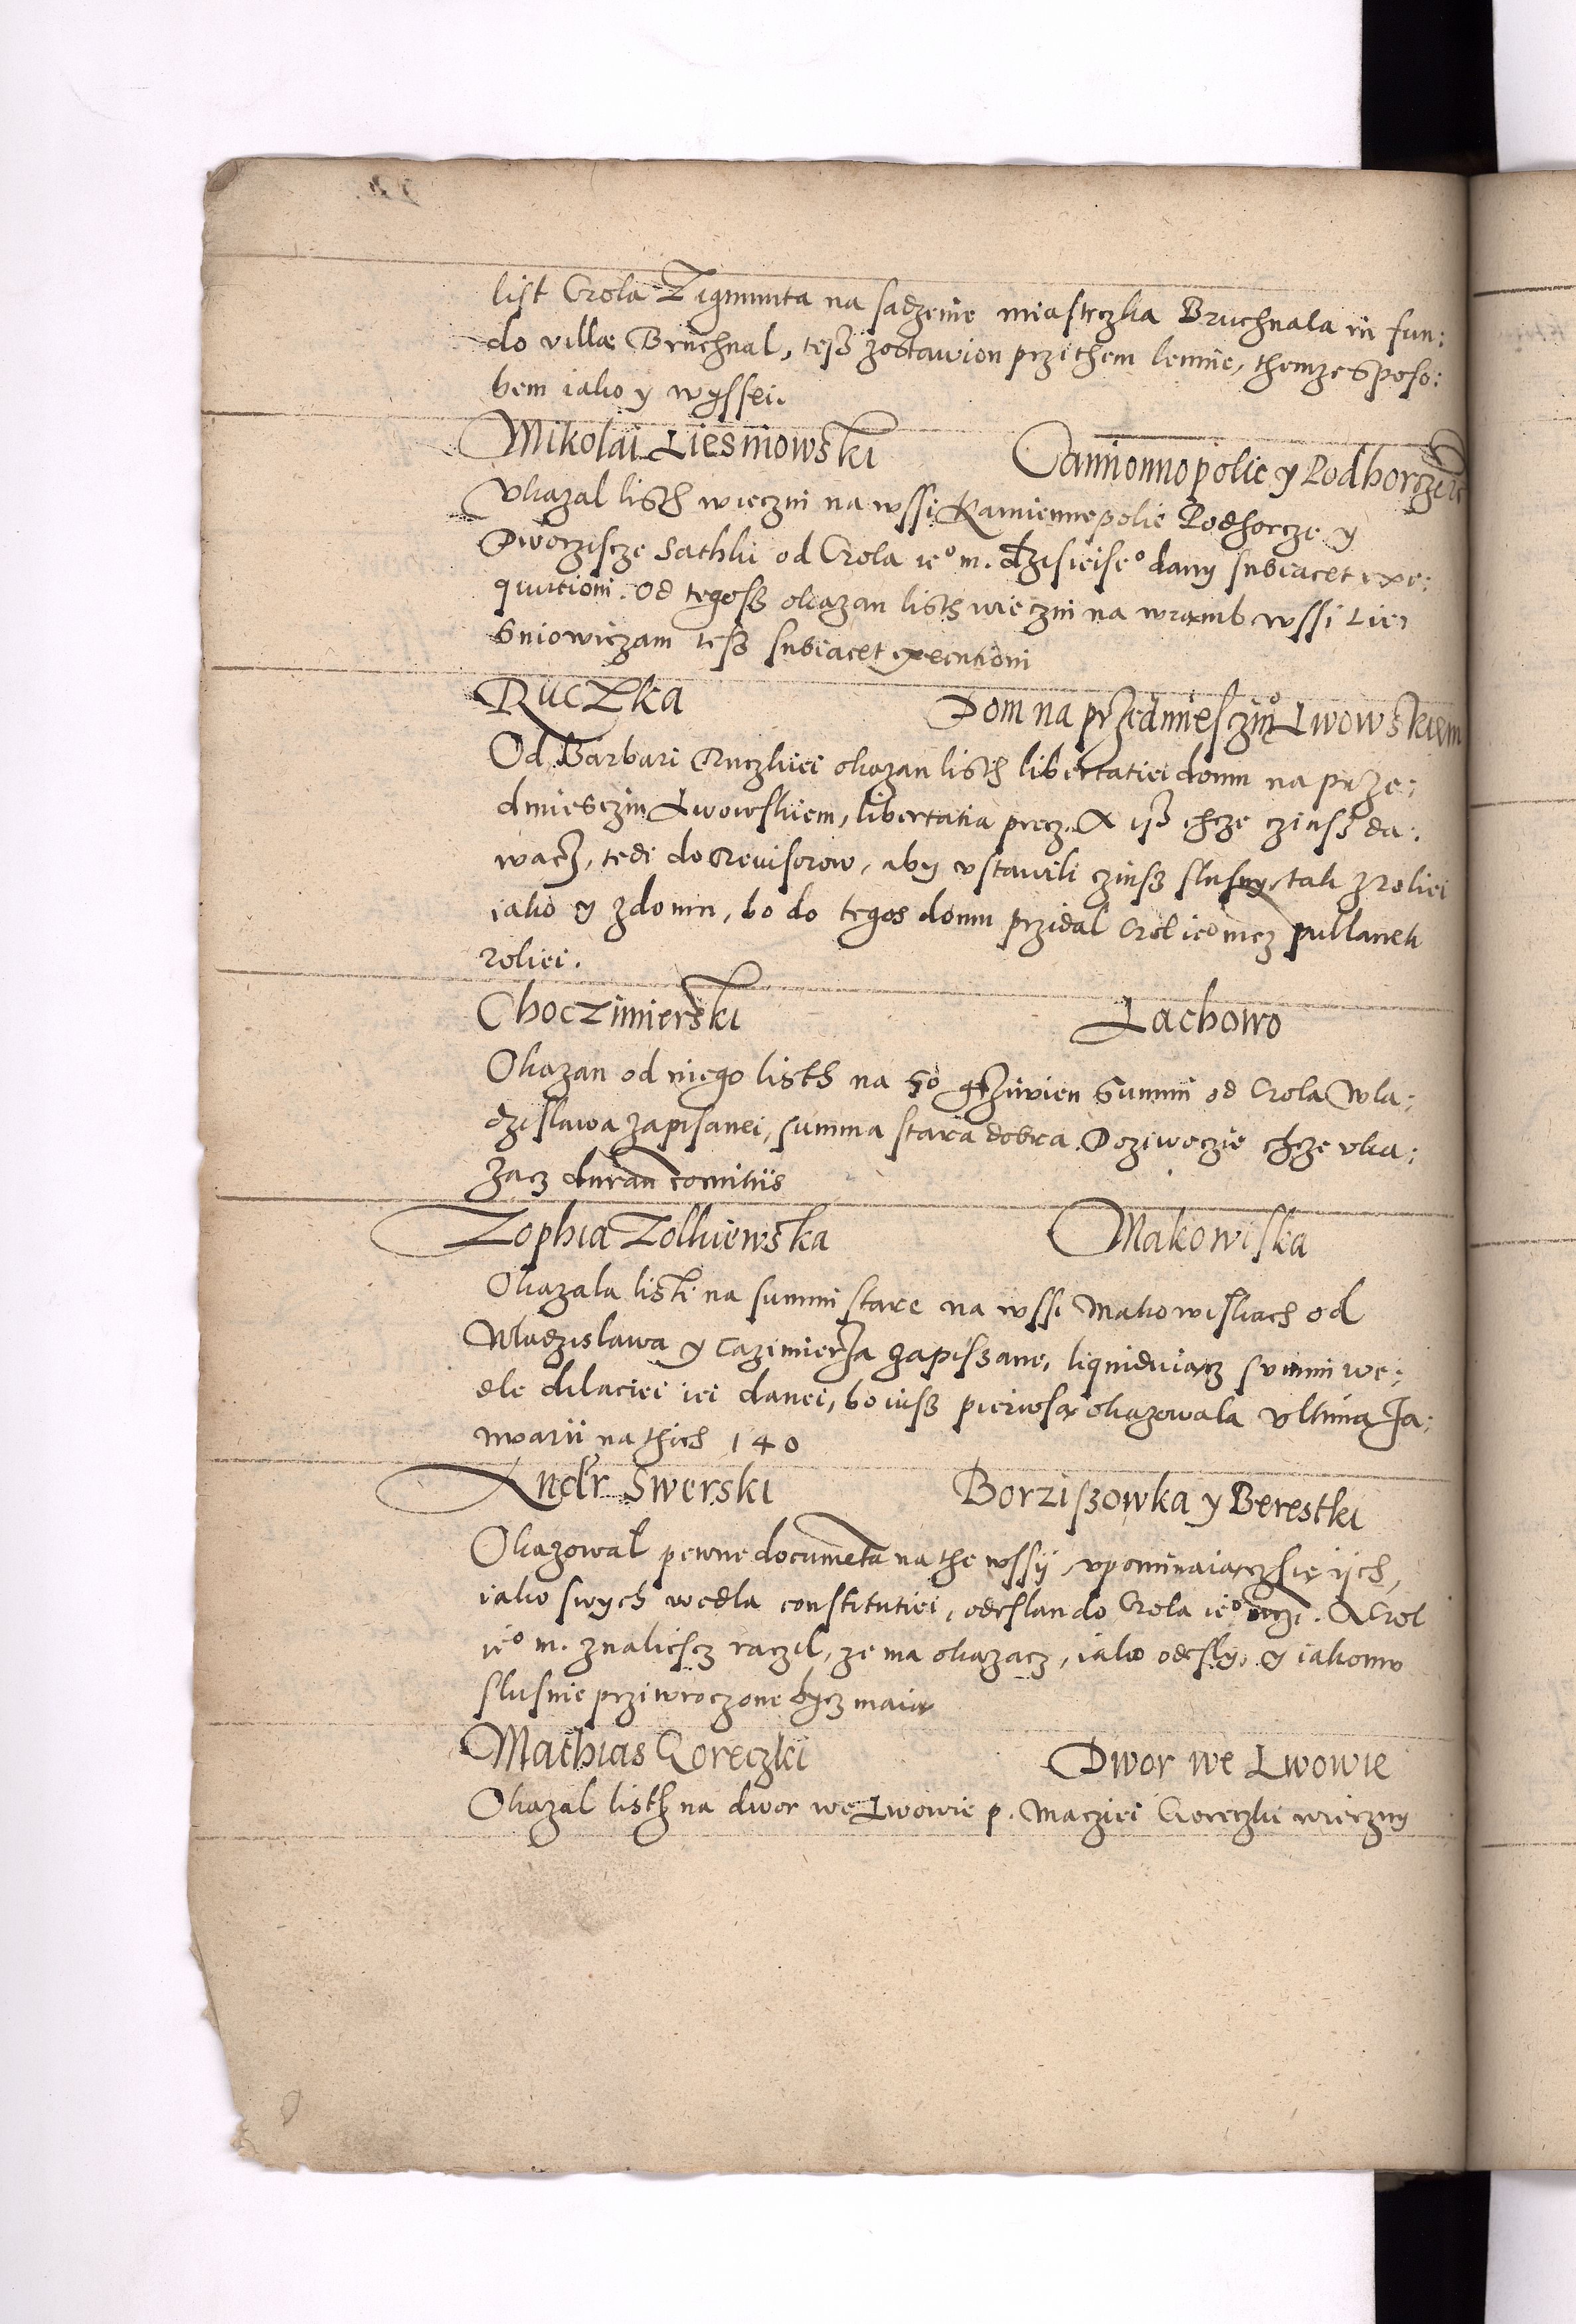 list Crola Zigmunta na sadzenie miasteczka Bruchnala in fun:
do villæ Bruchnal, tesz zostawion przithem lennie, themze sposo:
bem iako y wyssei.
Mikolai Liesniowski Camionnopolie y Podhorczze
Ukazal listh wieczni na wssi Kamiennopolie Podhorcze y
Dworziscze Sathki od Crola ieo m. dzisieiseo dany subiacet exe:
qucioni. Od tegosz okazan listh wieczni na wramb wssi Lie:
sniowiczam tesz subiacet executioni
Ruczka Dom na przedmiesciu Lwowskiem
Od Barbari Ruczkiei okazan listh libertatiei domu na prze:
dmiesczin Lwowskiem, libertatia precz. A isz chcze czinsz da:
wacz, tedi do Revisorow, aby ustawili czinsz slusny tak z roliei
iako y z domu, bo do tegos domu przidal Crol ieo mcz pullanek
roliei.
Choczimierski Lachowo
Okazan od niego listh na 50 grziwien summi od Crola Wla:
dzislawa zapisanei, summa stara dobra. Doziwoczie chcze uka:
zacz duran comitiis
Zophia Zolkiewska Makowiska
Okazala listi na summi stare na wssi Makowiskach od
Wladzislawa y Cazimierza zapiszane, liquiduiacz summi we:
dle dilaciei iei danei, bo iusz pierwsa okazowala ultima Ja:
nuarii na thich 140
Andr Swerski Borziszowka y Berestki
Okazowal pewne documeta na the wssy upominaiacz sie ijch,
iako swych wedla constitutiei, odeslan do Crola ieo mczi. A Crol
ieo m. znaliescz raczil, ze ma okazacz, iako odesly, y iakomu
slusnie przywroczone bycz maia
Mathias Goreczki Dwor we Lwowie
Okazal listh na dwor we Lwowie p. Macziei Goreczki wieczny